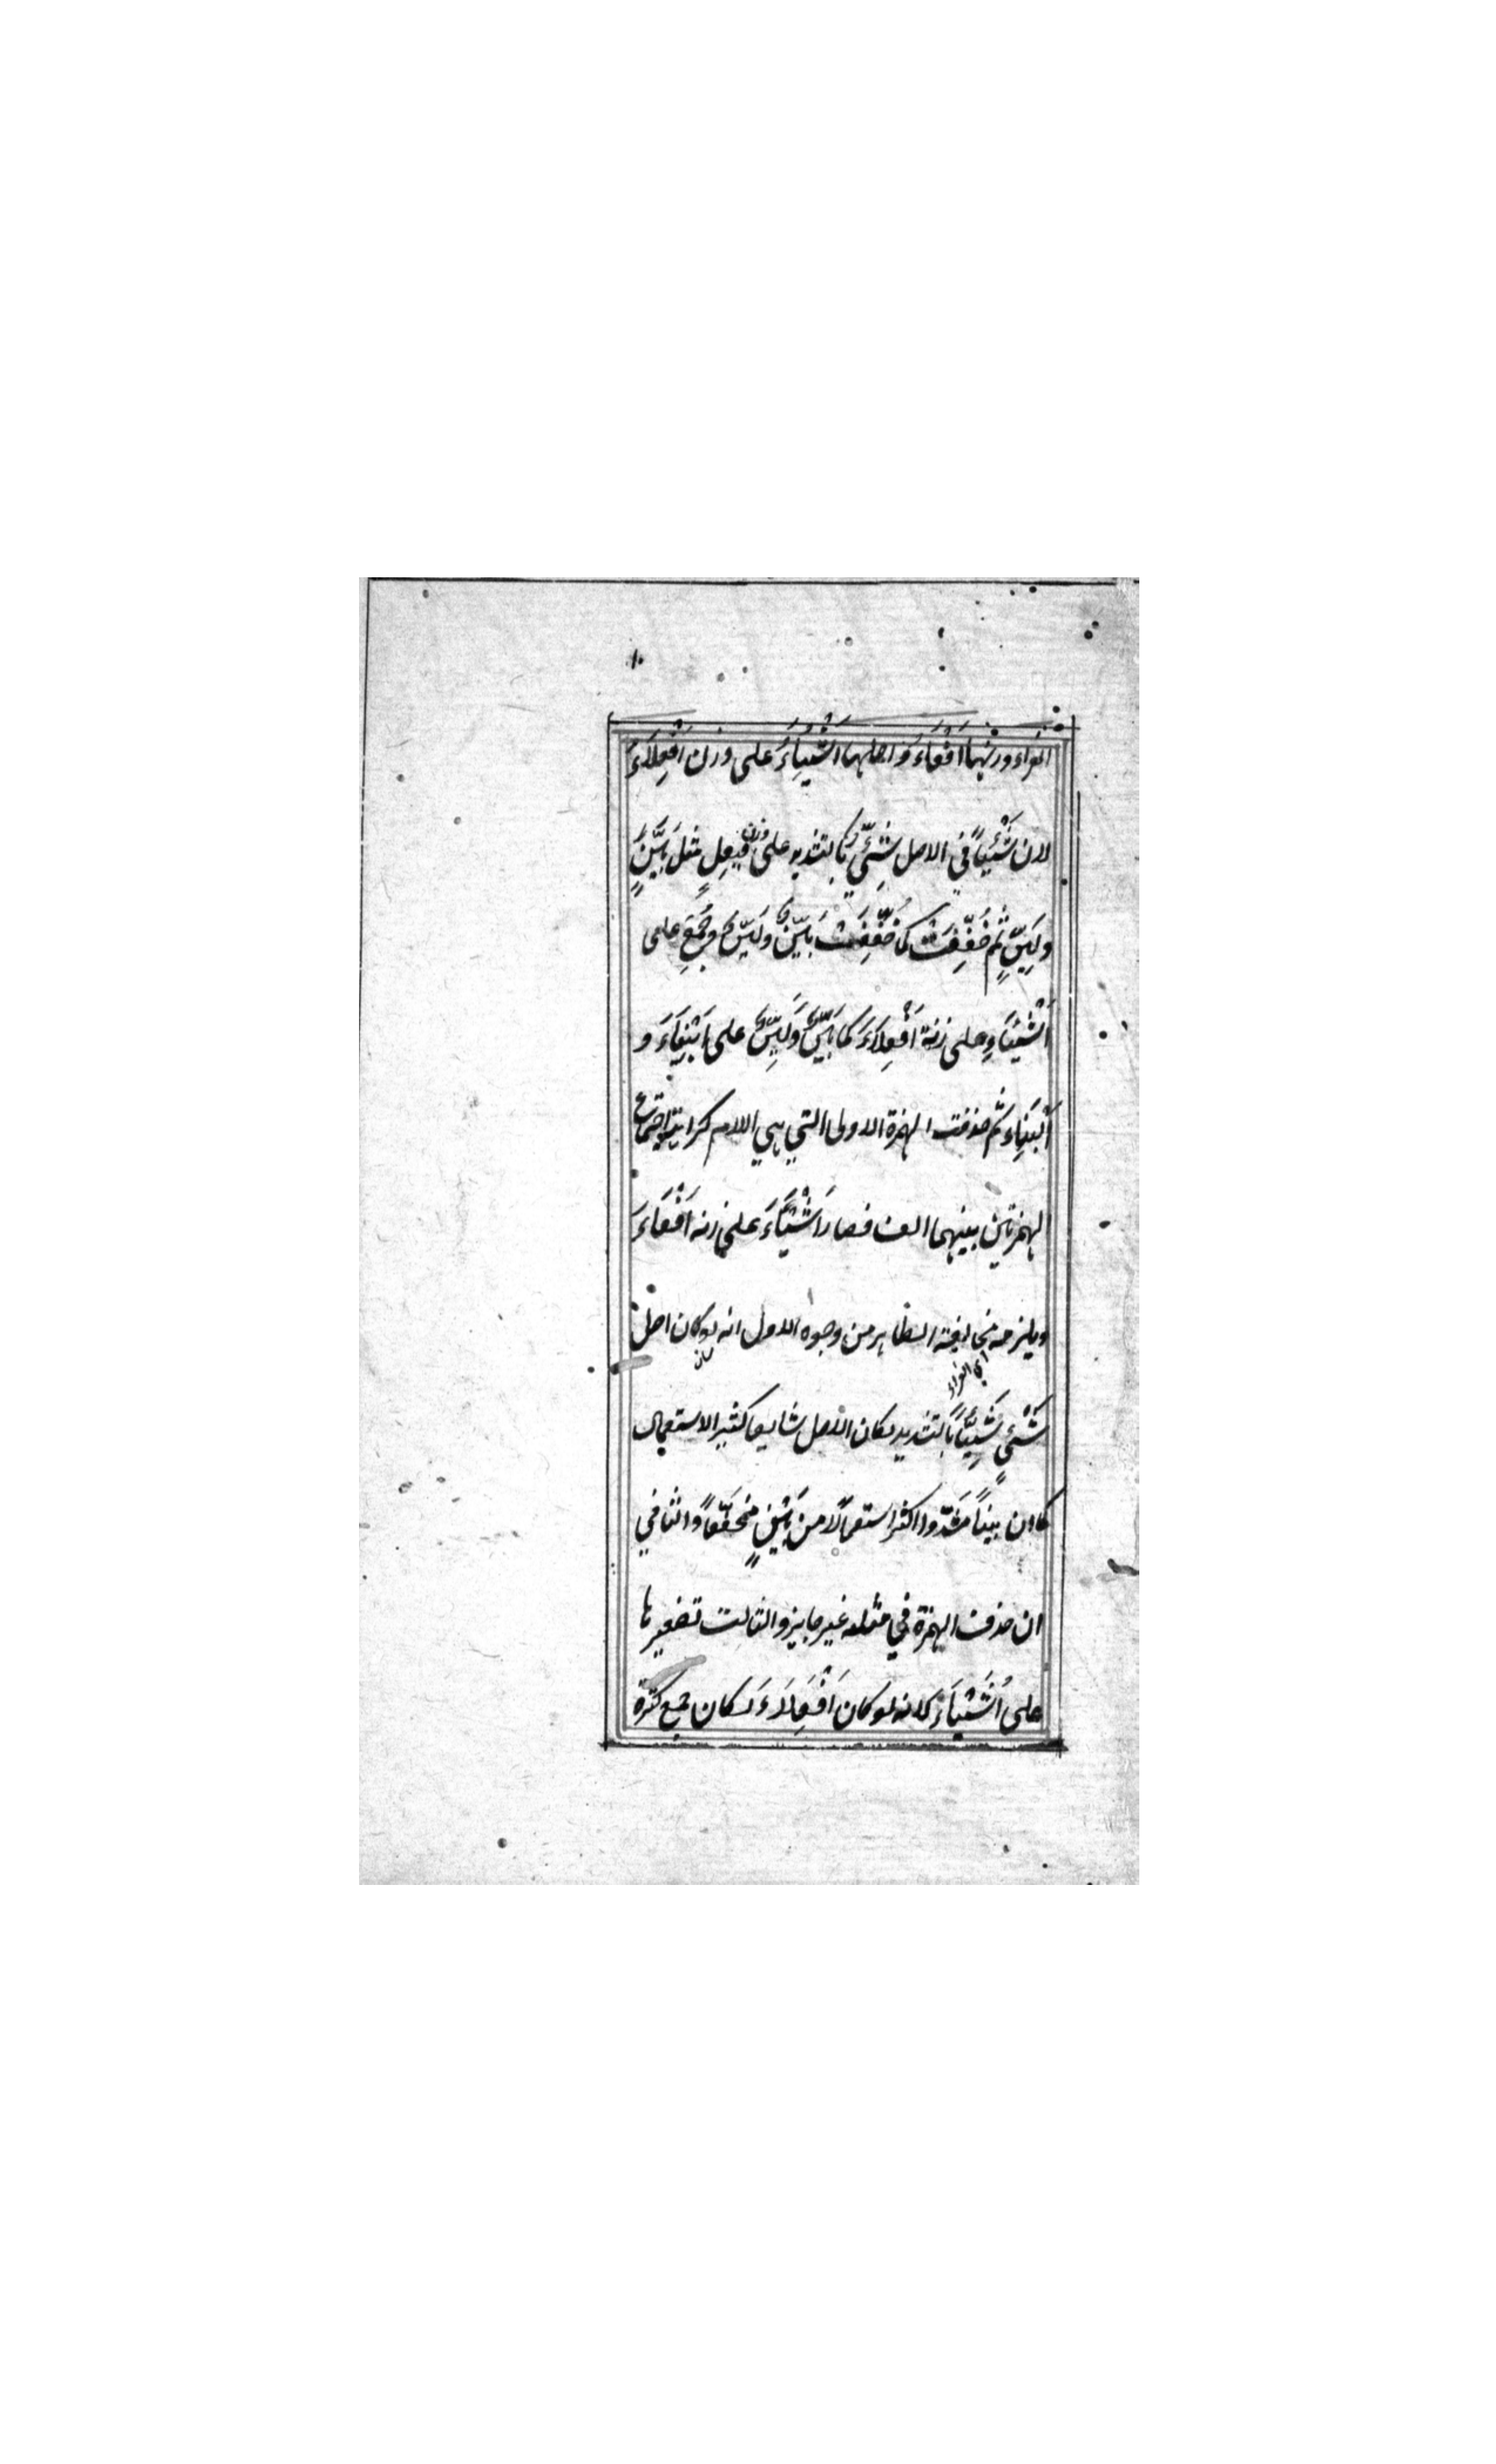 ١٠
الفراء وزنهما اَفْعَاءَ وَ اصلهما اَشْيِئَاءَ على وزن اَفْعِلَاءَ
لان شَيْئاً في الاصل شَيِّئٌ بالتشديد على وزن فَيْعِلٍ مثل بَيِّنٍ
ولَيِّنٍ ثم خُفِّفَتْ كما خُفِّفَتْ بَيِّنٌ ولَيِّنٌ وجُمِعَ على
اَشْيِئَاءِ على زنة اَفْعِلَاءَ كما بَيِّنٌ وَلَيِّنٌ على
اَلْيِنَاءَ ثم حذفت الهمزة الاولى التي هي اللام كراهية اجتماع
الهمزتين بينهما الف فصار اَشْيَاءَ على زنه اَفْعَاءَ
ويلزمه مخالفة الظاهر من وجوه الاول انه لو كان اصل
اي الفراء
شَيْءٍ شَيِّئاً بالتشديد لكان الاصل شايعا كثير الاستعمال
كما ان بيناً مشدّدا اكثر استعمالا من بَيْنٍ مخففاً والثاني
ان حذف الهمزة في مثله غير جايز والثالث تصغيرها
على اُشَيَّاءَ لانه لو كان اَفْعِلَاءَ لكان جمع كثرة